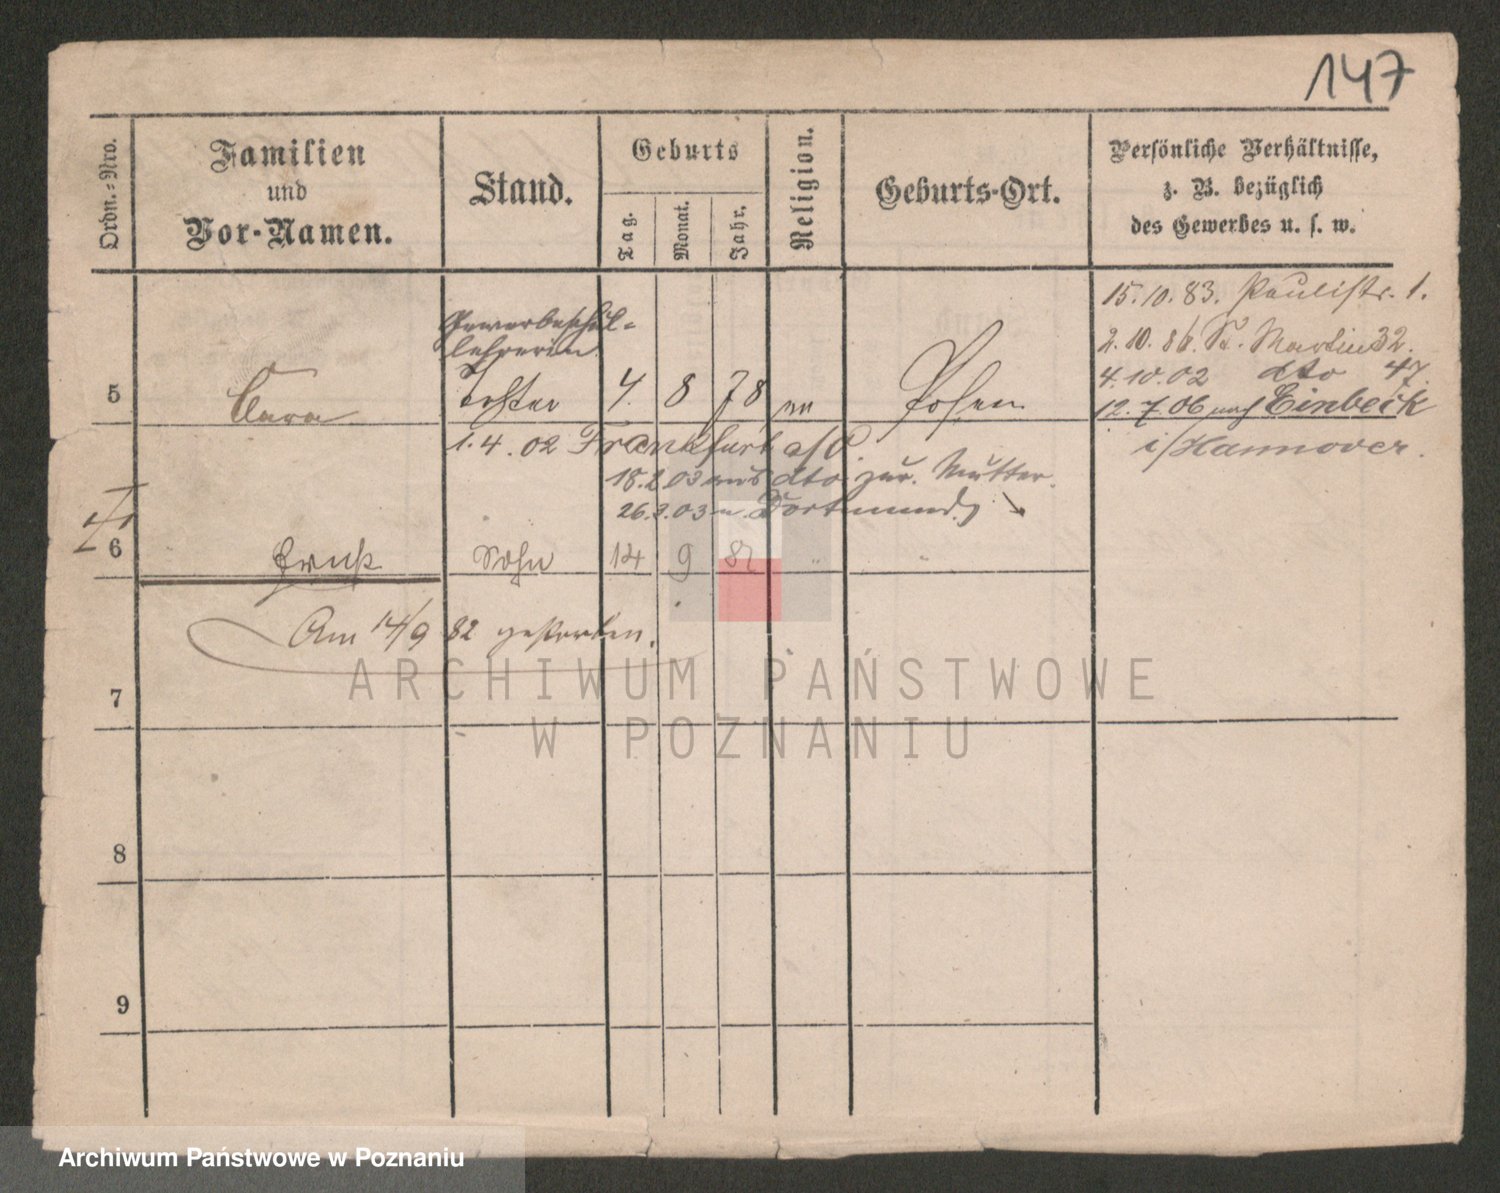 147
Ordn.-Nro.
Familien
und
Vor-Namen.
Stand.
Geburts
Tag.
Monat.
Jahr.
Religion.
Geburts-Ort.
Persönliche Verhältnisse,
z. B. bezüglich
des Gewerbes u. s. w.
15.10.83. Paulistr. 1.
Gewerbeschul-
lehrerin
2.10.86. St. Martin 32.
4.10.02 dto 47
5 Clara Tochter 4. 8 78 Posen
12.7.06 nach Einbeck
i/Hannover.
1.4.02 Frankfurt a/O
18.2.03 aus dto. zur. Mutter.
26.3.03 n. Dortmund
6 Sohn 14 9 82 "
Am 14/9 82 gestorben.
7
8
9
ARCHIWUM PAŃSTWOWE
W POZNANIU
Archiwum Państwowe w Poznaniu